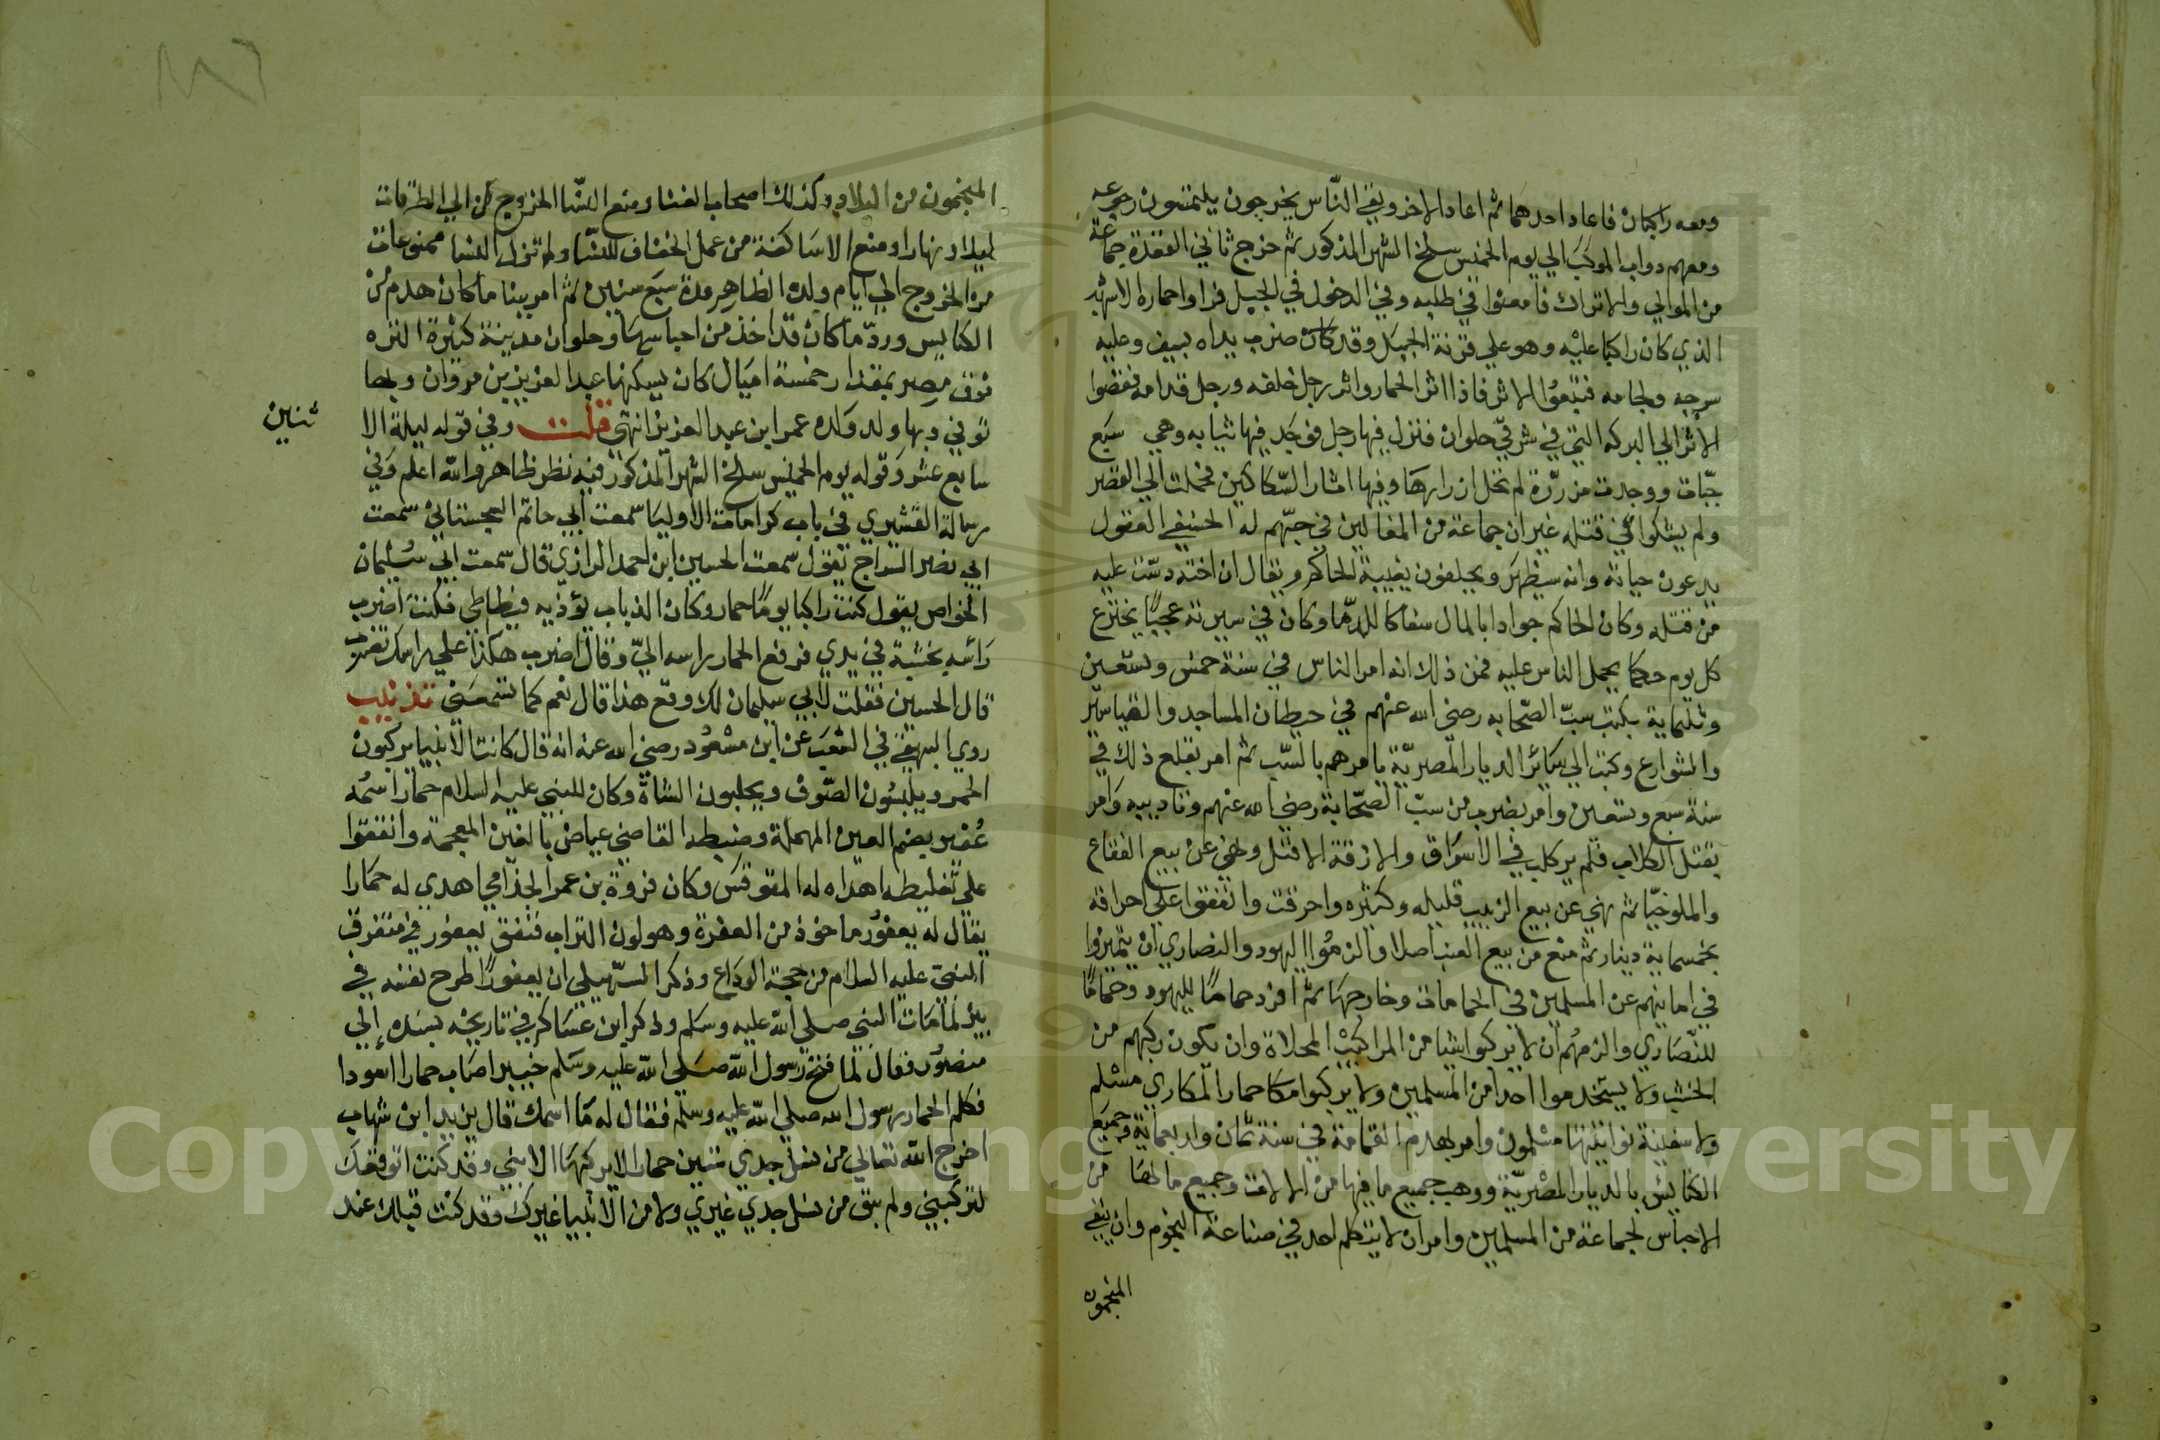 ومعه راكبان فاعاد احدهما ثم اعاد الاخر وبقي الناس يخرجون يلتمسون رجوعه
ومعهم دواب الموكب الي يوم الخميس سلخ الشهر المذكور ثم خرج ثاني القعدة جماعة
من الموالي والاتراك فامعنوا في طلبه وفي الدخول في الجبل فراوا حماره الاشهب
الذي كان راكبا عليه وهو علي قرنة الجبل وقد كان ضرب يداه بسيف وعليه
سرجه ولجامه فتبعوا الاثر فاذا اثر الحمار واثر رجل خلفه ورجل قدامه فقصوا
الاثر الي البركه التي في شرقي حلوان فنزل فيها رجل فوجد فيها ثيابه وهي سبع
جبات ووجدت مزررة لم تحل ازرارها وفيها اثار السكاكين فحملت الي القصر
ولم يشكوا في قتله غير ان جماعة من المغالين في حبهم له الخسيفي العقول
يدعون حياته وانه سيظهر ويحلفون بغيبة الحاكم ويقال ان اخته دست عليه
من قتله وكان الحاكم جوادا بالمال سفاكا للدما وكان في سيرته عجيبا يخترع
كل يوم حكما يحمل الناس عليه فمن ذلك انه امر الناس في سنة خمس وتسعين
وثلثماية بكتب سب الصحابه رضي الله عنهم في حيطان المساجد والقياسر
والشوارع وكتب الي سائر الديار المصرية يامرهم بالسب ثم امر بقلع ذلك في
سنة سبع وتسعين وامر بضرب من سب الصحابة رضي الله عنهم وتاديبه وامر
بقتل الكلاب فلم ير كلب في الاسواق والازقة الا قتل ونهي عن بيع الفقاع
والملوخيا ثم نهي عن بيع الزبيب قليله وكثيره واحرقت وانفقوا علي احراقه
بخمسماية دينار ثم منع من بيع العنب اصلا والزموا اليهود والنصاري ان يتميزوا
في اماينهم عن المسلمين في الحمامات وخارجها ثم افرد حماما لليهود وحماما
للنصاري والزمهم ان لا يركبوا شيا من المراكب المحلاة وان يكون ركبهم من
الخشب ولا يستخدموا احدا من المسلمين ولا يركبوا مكا حمارا لمكاري مسلم
ولا سفينة نواتيتها مسلمون وامر بهدم القمامة في سنة ثمان واربعماية وجميع
الكنايس بالديار المصرية ووهب جميع ما فيها من الالات وجميع مالها من
الاحباس لجماعة من المسلمين وامر ان لا يتكلم احد في صناعة النجوم وان ينفي
المنجمون
المنجمون من البلاد وكذلك اصحاب الغنا ومنع النسا الخروج من الي الطرقات
ليلا ونهارا ومنع الاساكفة من عمل الخفاف للنسا ولم تزل النسا ممنوعات
من الخروج الي ايام ولده الظاهر مدة سبع سنين ثم امر ببنا ما كان هدم من
الكنايس ورد ما كان قد اخذ من احباسها وحلوان مدينة كثيرة النزه
فوق مصر بمقدار خمسة اميال كان يسكنها عبد العزيز بن مروان وبها
توفي وبها ولد ولده عمر ابن عبد العزيز انتهي قلت وفي قوله ليلة الا
ثنين
سابع عشر وقوله يوم الخميس سلخ الشهر المذكور فيه نظر ظاهر والله اعلم وفي
رسالة القشيري في باب كرامات الاوليا سمعت ابي حاتم السجستاني سمعت
ابي نصر السراج يقول سمعت الحسين ابن احمد الرازي قال سمعت ابي سليمان
الخواص يقول كنت راكبا يوما حمار وكان الذباب يؤذيه فيطاطي فكنت اضرب
رائسه بخشبة في يدي فرفع الحمار راسه الي وقال اضرب هكذا علي راسك تضرب
قال الحسين فقلت لابي سليمان لك وقع هذا قال نعم كما تسمعني تذنيب
روي البيهقي في الشعب عن ابن مسعود رضي الله عنه انه قال كانت الانبيا يركبون
الحمر ويلبسون الصوف ويحلبون الشاة وكان للنبي عليه السلام حمارا اسمه
عفير بضم العين المهملة وضبطه القاضي عياض بالغين المعجمة واتفقوا
علي تغليطه اهداه له المقوقس وكان فروة بن عمر الجذامي اهدي له حمارا
يقال له يعفور ماخوذ من العفرة وهو لون التراب فنفق يعفور في منصرف
النبي عليه السلام من حجة الوداع وذكر السهيلي ان يعفورا طرح نفسه في
بير لمامات النبي صلي الله عليه وسلم وذكر ابن عساكر في تاريخه بسنده الي
منصور فقال لما فتح رسول الله صلي الله عليه وسلم خيبر اصاب حمارا اسودا
فكلم الحمار رسول الله صلي الله عليه وسلم فقال له ما اسمك قال يزيد ابن شهاب
اخرج الله تعالي من نسل جدي ستين حمارا لا يركبها الا نبي وقد كنت اتوقعك
لتركبني ولم يبق من نسل جدي غيري ولا من الانبيا غيرك وقد كنت قبلك عند
Copyright © King Saud University